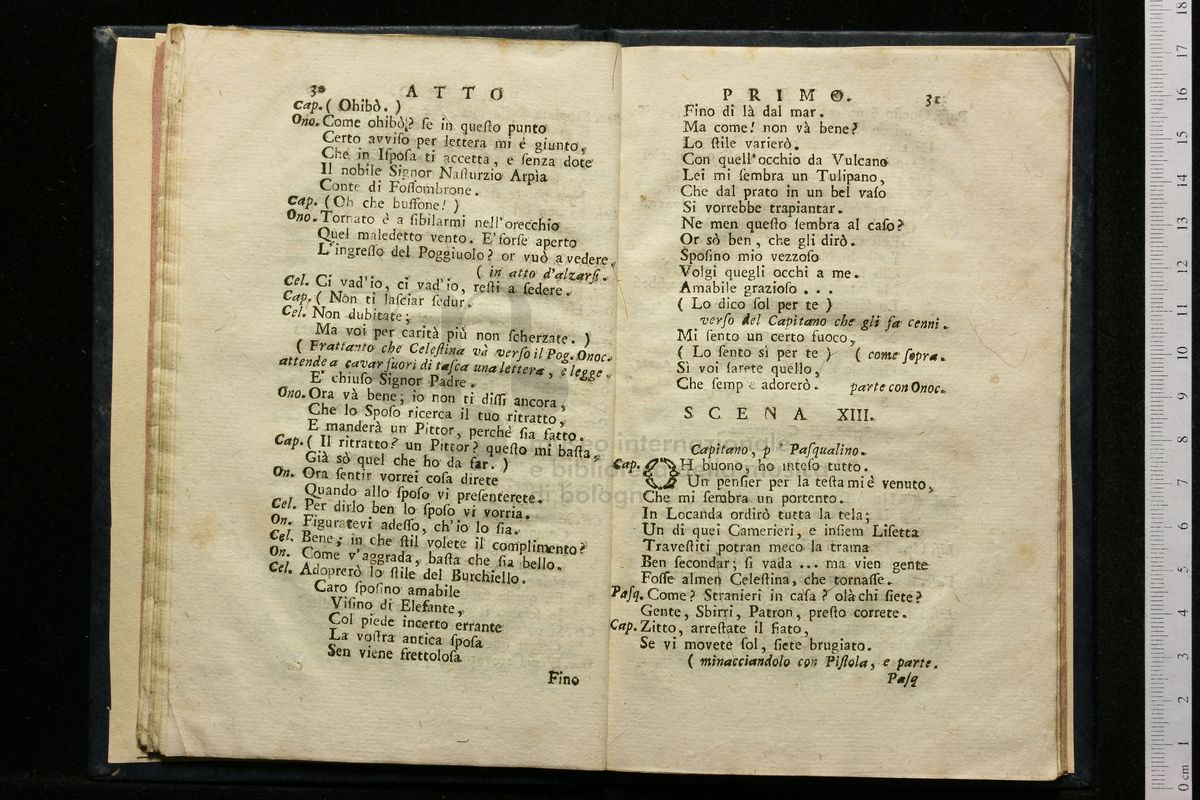 30 ATTO
Cap. ( Ohibò. )
Ono. Come ohibò? ſe in queſto punto
Certo avviſo per lettera mi è giunto,
Che in Iſpoſa ti accetta, e ſenza dote
Il nobile Signor Naſturzio Arpìa
Conte di Foſſombrone.
Cap. (Oh che buffone! )
Ono. Tornato è a ſibilarmi nell'orecchio
Quel maledetto vento. E' forſe aperto
L'ingreſſo del Poggiuolo? or vuò a vedere.
( in atto d'alzarſi.
Cel. Ci vad'io, ci vad'io, reſti a ſedere.
Cap. ( Non ti laſciar ſedur.
Cel. Non dubitate;
Ma voi per carità più non ſcherzate. )
( Frattanto che Celeſtina và verſo il Pog. Onoc.
attende a cavar fuori di taſca una lettera, e legge.
E' chiuſo Signor Padre.
Ono. Ora và bene; io non ti diſſi ancora,
Che lo Spoſo ricerca il tuo ritratto,
E manderà un Pittor, perchè ſia fatto.
Cap. ( Il ritratto? un Pittor? queſto mi baſta,
Già sò quel che ho da far. )
On. Ora ſentir vorrei coſa direte
Quando allo ſpoſo vi preſenterete.
Cel. Per dirlo ben lo ſpoſo vi vorria.
On. Figuratevi adeſſo, ch'io lo ſia.
Cel. Bene; in che ſtil volete il complimento?
On. Come v'aggrada, baſta che ſia bello.
Cel. Adoprerò lo ſtile del Burchiello.
Caro ſpoſino amabile
Viſino di Elefante,
Col piede incerto errante
La voſtra antica ſpoſa
Sen viene frettoloſa
Fino
PRIMO. 31
Fino di là dal mar.
Ma come! non và bene?
Lo ſtile varierò.
Con quell'occhio da Vulcano
Lei mi ſembra un Tulipano,
Che dal prato in un bel vaſo
Si vorrebbe trapiantar.
Ne men queſto ſembra al caſo?
Or sò ben, che gli dirò.
Spoſino mio vezzoſo
Volgi quegli occhi a me.
Amabile grazioſo . . .
( Lo dico ſol per te )
verſo del Capitano che gli fa cenni.
Mi ſento un certo fuoco,
( Lo ſento sì per te ) ( come ſopra.
Sì voi ſarete quello,
Che ſemp e adorerò. parte con Onoc.
SCENA XIII.
Capitano, p Paſqualino.
Cap. OH buono, ho inteſo tutto.
Un penſier per la teſta mi è venuto,
Che mi ſembra un portento.
In Locanda ordirò tutta la tela;
Un di quei Camerieri, e inſiem Liſetta
Traveſtiti potran meco la trama
Ben ſecondar; ſi vada ... ma vien gente
Foſſe almen Celeſtina, che tornaſſe.
Paſq. Come? Stranieri in caſa? olà chi ſiete?
Gente, Sbirri, Patron, preſto correte.
Cap. Zitto, arreſtate il fiato,
Se vi movete ſol, ſiete brugiato.
( minacciandolo con Piſtola, e parte.
Paſq
museo internazionale
e biblioteca della musica
di bologna
0 cm 1 2 3 4 5 6 7 8 9 10 11 12 13 14 15 16 17 18